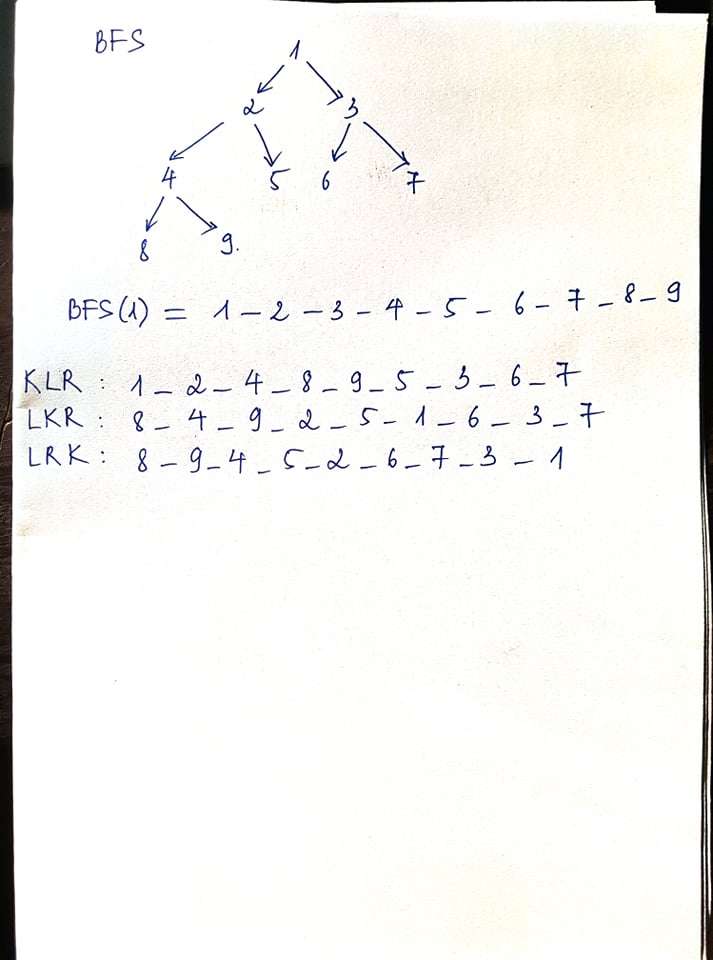 BFS
1
2 3
4 5 6 7
8 9.
BFS(1) = 1 - 2 - 3 - 4 - 5 - 6 - 7 - 8 - 9
KLR : 1 - 2 - 4 - 8 - 9 - 5 - 3 - 6 - 7
LKR : 8 - 4 - 9 - 2 - 5 - 1 - 6 - 3 - 7
LRK : 8 - 9 - 4 - 5 - 2 - 6 - 7 - 3 - 1